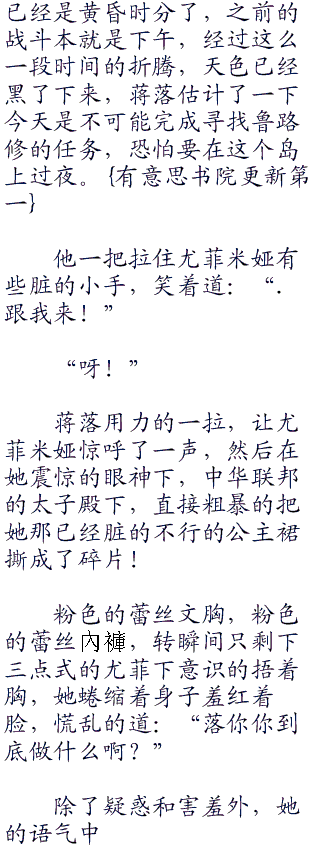 已经是黄昏时分了，之前的
战斗本就是下午，经过这么
一段时间的折腾，天色已经
黑了下来，蒋落估计了一下
今天是不可能完成寻找鲁路
修的任务，恐怕要在这个岛
上过夜。{有意思书院更新第
一}
他一把拉住尤菲米娅有
些脏的小手，笑着道：“.
跟我来！”
“呀！”
蒋落用力的一拉，让尤
菲米娅惊呼了一声，然后在
她震惊的眼神下，中华联邦
的太子殿下，直接粗暴的把
她那已经脏的不行的公主裙
撕成了碎片！
粉色的蕾丝文胸，粉色
的蕾丝內褲，转瞬间只剩下
三点式的尤菲下意识的捂着
胸，她蜷缩着身子羞红着
脸，慌乱的道：“落你你到
底做什么啊？”
除了疑惑和害羞外，她
的语气中